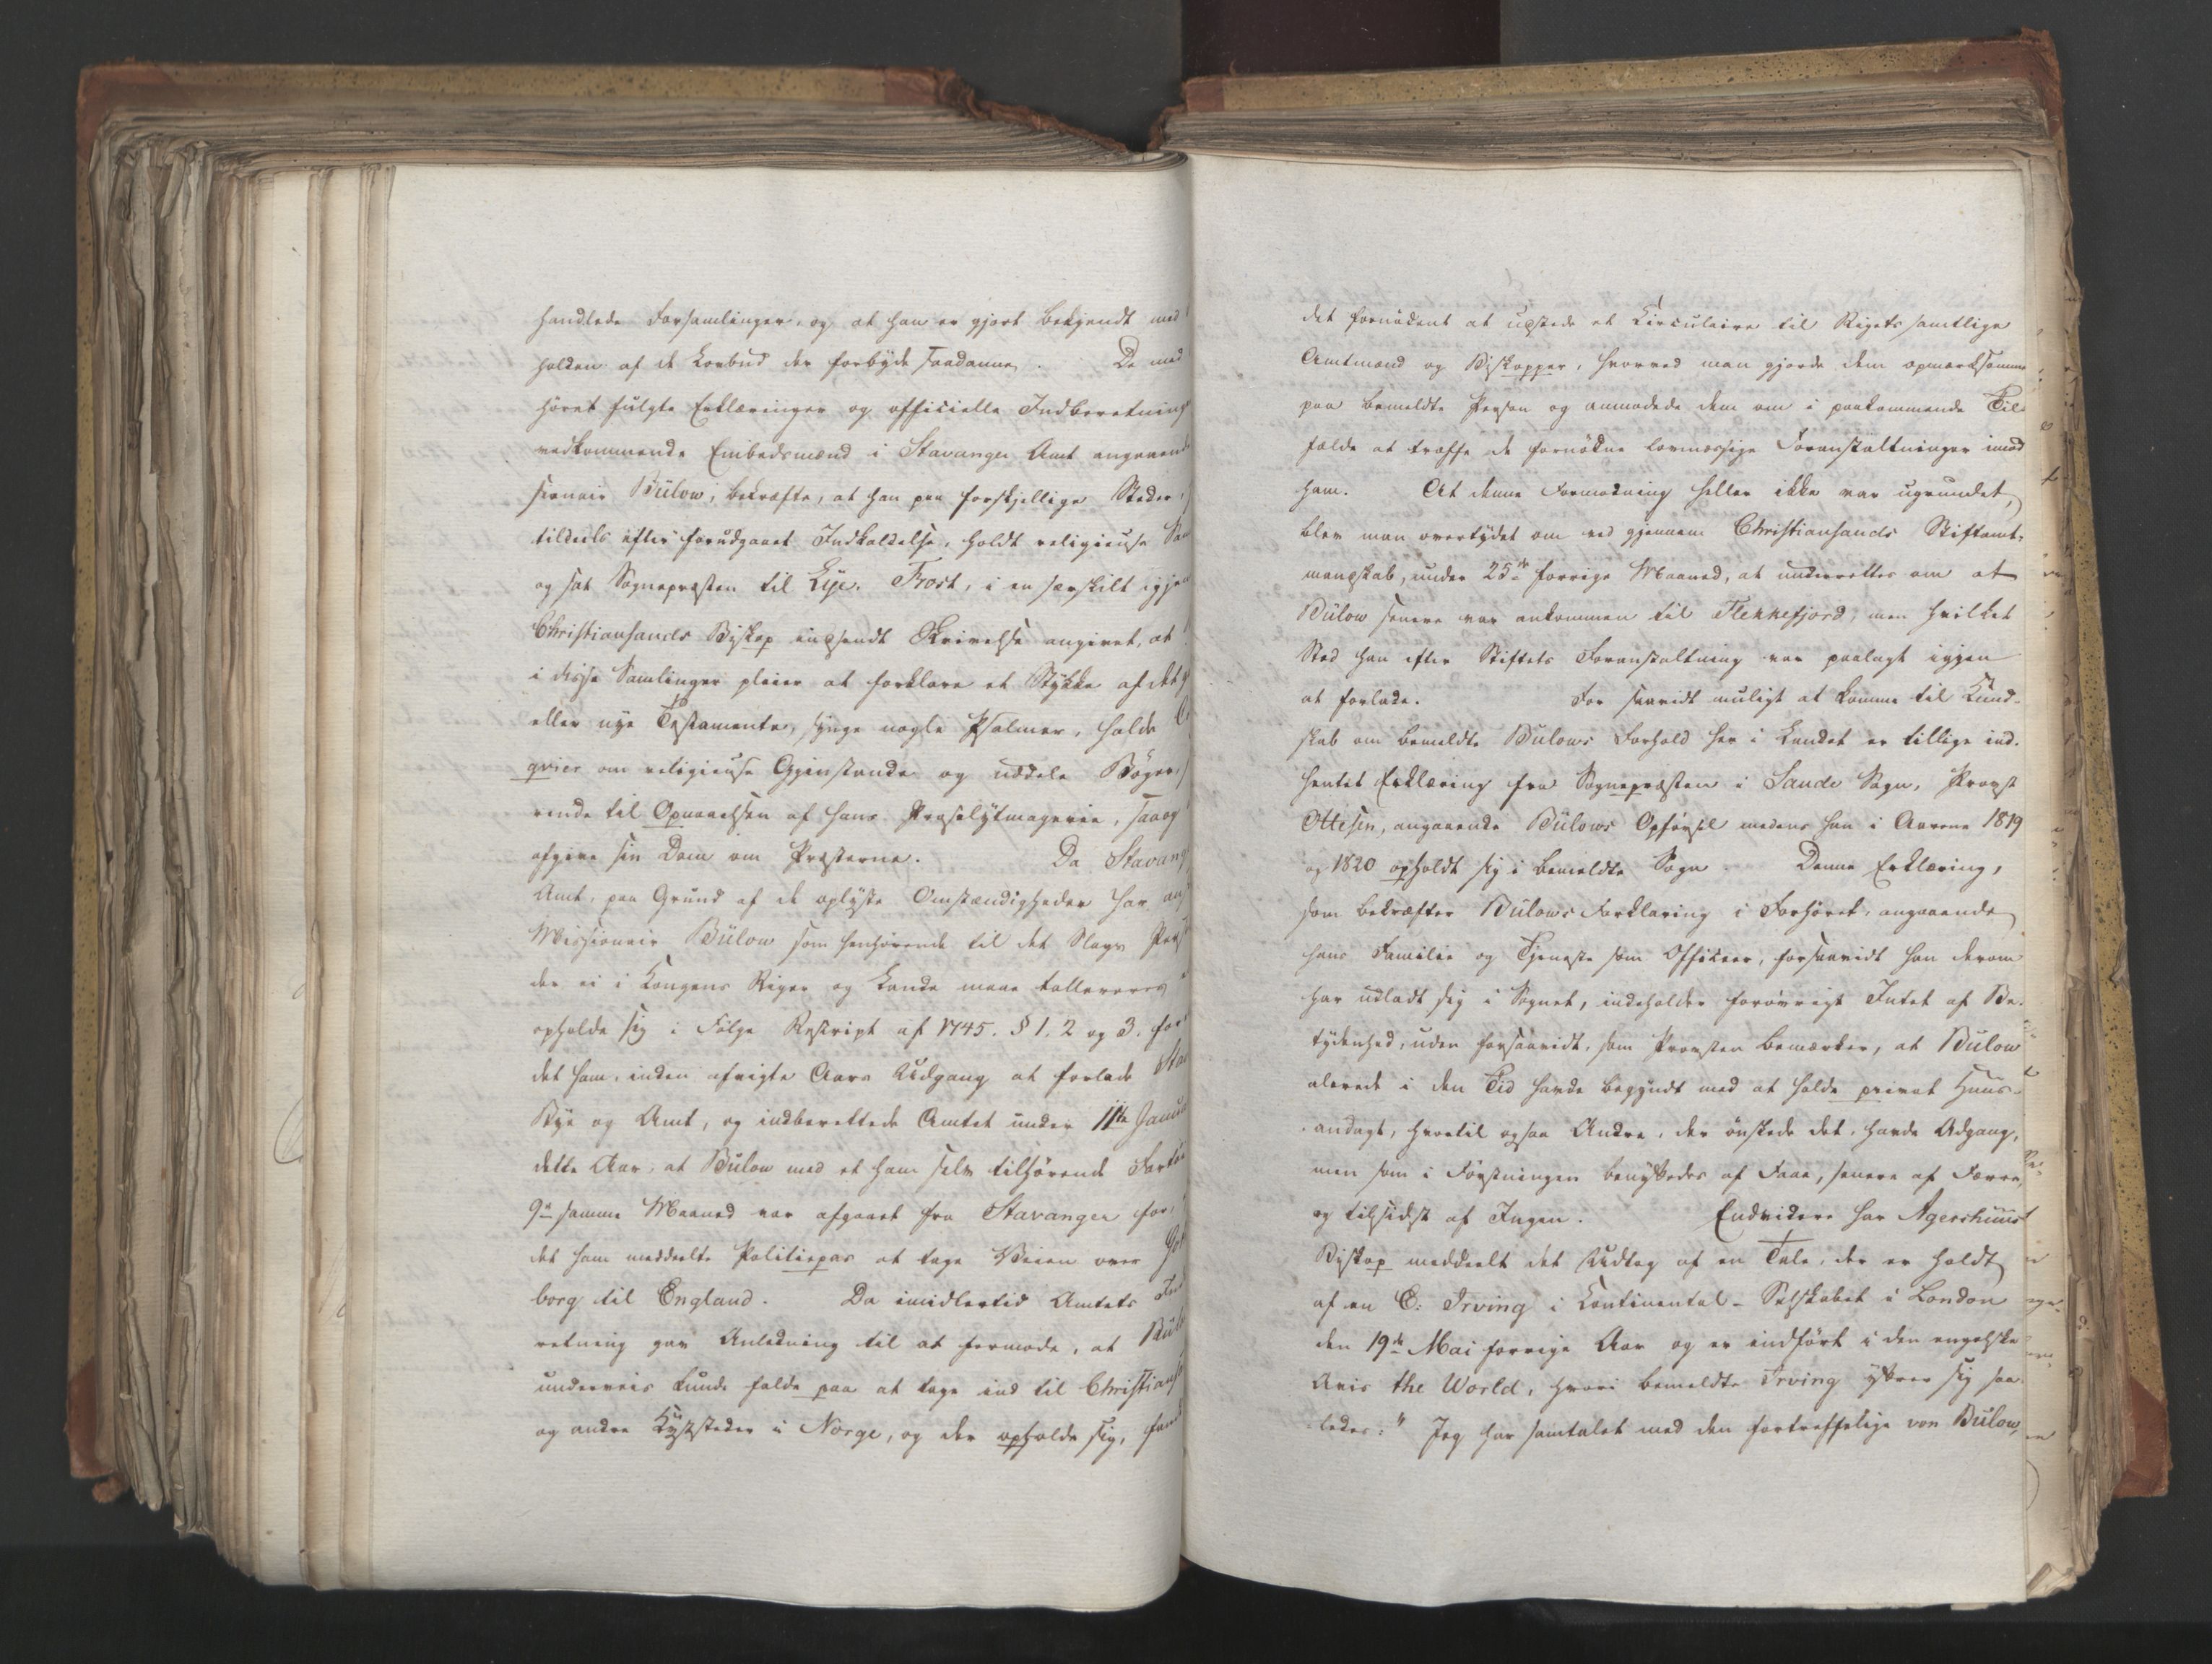 handlede Forsamlinger, og at han er gjort bekjendt med
holden af de Lovbud der forbyde saadanne. De med
höret fulgte Erklæringer og officielle Indberetninge
vedkommende Embedsmænd i Stavanger Amt angaaende
sionair Bülow, bekræfte, at han paa forskjellige Steder,
tildeels efter forudgaaet Indkaldelse, holdt religieuse Sam
og sat Sognepræsten til Lye, Frost, i en særskilt igjen
Christiansands Biskop indsendt Skrivelse angivet, at
i disse Samlinger pleier at forklare et Stykke af det g
eller nye Testamente, synge nogle Psalmer, holde
qvier om religieuse Gjenstande og uddele Böger,
rende til Opnaaelsen af hans Proselytmagerie, saaog
afgive sin Dom om Præsterne. Da Stavang
Amt, paa Grund af de oplyste Omstændigheder har an
Missionair Bülow som henhörende til det Slags Pers
der ei i Kongens Riger og Lande maae tollereres
opholde sig i Fölge Rescript af 1745. § 1. 2 og 3. for
det ham, inden afvigte Aars Udgang at forlade Stav
Bye og Amt, og indberettede Amtet under 11te Janua
dette Aar, at Bülow med et ham selv tilhörende Fartöi
9de samme Maaned var afgaaet fra Stavanger for,
det ham meddeelte Politiepas at tage Veien over Got
borg til England. Da imidlertid Amtets Ind
retning gav Anledning til at formode, at Bülo
underveis kunde falde paa at tage ind til Christians
og andre Kyststeder i Norge, og der opholde sig, fand
det fornödent at udstede et Circulaire til Rigets samtlige
Amtmænd og Biskopper, hvorved man gjorde dem opmærksomme
paa bemeldte Person og anmodede dem om i paakommende Til-
fælde at træffe de fornödne lovmæssige Foranstaltninger imod
ham. At denne Formodning heller ikke var ugrundet,
blev man overtydet om ved gjennem Christiansands Stiftamt-
mandskab, under 25de forrige Maaned, at underrettes om at
Bülow senere var ankommen til Flekkefjord, men hvilket
Sted han efter Stiftets Foranstaltning var paalagt igjen
at forlade. For saavidt muligt at komme til Kund-
skab om bemeldte Bülows Forhold her i Landet er tillige ind-
hentet Erklæring fra Sognepræsten i Sande Sogn, Provst
Ottesen, angaaende Bülows Opförsel medens han i Aarene 1819
og 1820 opholdt sig i bemeldte Sogn. Denne Erklæring,
som bekræfter Bülows Forklaring i Forhöret, angaaende
hans Familie og Tjeneste som Officeer, forsaavidt han derom
har udladt sig i Sognet, indeholder forövrigt Intet af Be-
tydenhed, uden forsaavidt, som Provsten bemærker, at Bülow
alerede i den Tid havde begyndt med at holde privat Huus-
andagt, hvortil ogsaa Andre, der önskede det, havde Adgang,
men som i Förstningen benyttedes af Faae, senere af Færre,
og tilsidst af Ingen. Endvidere har Agershuus
Biskop meddeelt det Udtog af en Tale, der er holdt
af en E: Irving i Continental-Selskabet i London
den 19de Mai forrige Aar og er indfört i den engelske
Avis the World, hvori bemeldte Irving yttrer sig saa-
ledes: "Jeg har samtalet med den fortreffelige von Bülow,